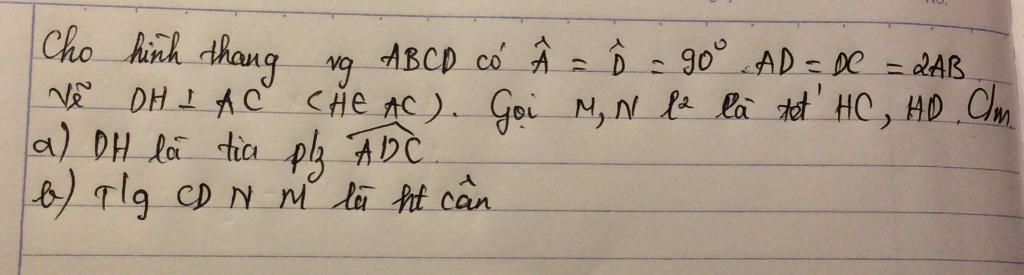 Cho hình thang vg ABCD có Â = D̂ = 90° . AD = DC = 2AB
Vẽ DH ⊥ AC (H∈ AC). Gọi M, N l² là tđ HC, HD. C/m
a) DH là tia p/g ADC
b) T/g CD N M là ht cân